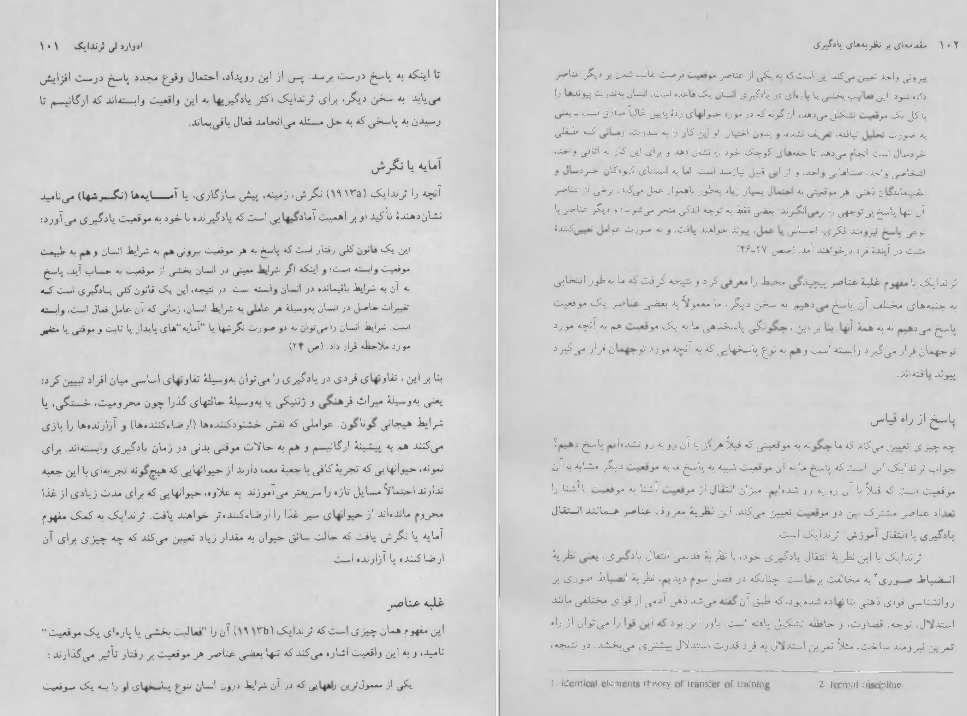 ادوارد لی ثرندایک ۱۰۱
تا اینکه به پاسخ درست برسد. پس از این رویداد، احتمال وقوع مجدد پاسخ درست افزایش
می‌یابد. به سخن دیگر، برای ثرندایک اکثر یادگیریها به این واقعیت وابسته‌اند که ارگانیسم تا
رسیدن به پاسخی که به حل مسئله می‌انجامد فعال باقی‌بماند.
آمایه یا نگرش
آنچه را ثرندایک (۱۹۱۳b) نگرش، زمینه، پیش سازگاری، یا آمـــایه‌ها (نگـرشها) می‌نامید
نشان‌دهندهٔ تأکید او بر اهمیت آمادگیهایی است که یادگیرنده با خود به موقعیت یادگیری می‌آورد:
این یک قانون کلی رفتار است که پاسخ به هر موقعیت بیرونی هم به شرایط انسان و هم به طبیعت
موقعیت وابسته است؛ و اینکه اگر شرایط معینی در انسان بخشی از موقعیت به حساب آید، پاسخ
به آن به شرایط باقیمانده در انسان وابسته است. در نتیجه، این یک قانون کلی یـادگیری است کـه
تغییرات حاصل در انسان به‌وسیلهٔ هر عاملی به شرایط انسان، زمانی که آن عامل فعال است، وابسته
است. شرایط انسان را می‌توان به دو صورت نگرشها یا "آمایه"های پایدار یا ثابت و موقتی یا متغیر
مورد ملاحظه قرار داد. (ص ۲۴)
بنا بر این، تفاوتهای فردی در یادگیری را می‌توان به‌وسیلهٔ تفاوتهای اساسی میان افراد تبیین کرد؛
یعنی به‌وسیلهٔ میراث فرهنگی و ژنتیکی یا به‌وسیلهٔ حالتهای گذرا چون محرومیت، خستگی، یا
شرایط هیجانی گوناگون. عواملی که نقش خشنودکننده‌ها (ارضاءکننده‌ها) و آزارنده‌ها را بازی
می‌کنند هم به پیشینهٔ ارگانیسم و هم به حالات موقتی بدنی در زمان یادگیری وابسته‌اند. برای
نمونه، حیوانهایی که تجربهٔ کافی با جعبهٔ معما دارند از حیوانهایی که هیچ‌گونه تجربه‌ای با این جعبه
ندارند احتمالاً مسایل تازه را سریعتر می‌آموزند. به علاوه، حیوانهایی که برای مدت زیادی از غذا
محروم مانده‌اند از حیوانهای سیر غذا را ارضاءکننده‌تر خواهند یافت. ثرندایک به کمک مفهوم
آمایه یا نگرش یافت که حالت سائق حیوان به مقدار زیاد تعیین می‌کند که چه چیزی برای آن
ارضاکننده یا آزارنده است.
غلبه عناصر
این مفهوم همان چیزی است که ثرندایک (۱۹۱۳b) آن را "فعالیت بخشی یا پاره‌ای یک موقعیت"
نامید، و به این واقعیت اشاره می‌کند که تنها بعضی عناصر هر موقعیت بر رفتار تأثیر می‌گذارند:
یکی از معمول‌ترین راههایی که در آن شرایط درون انسان تنوع پـاسخهای او را بـه یک مـوقعیت
۱۰۲ مقدمه‌ای بر نظریه‌های یادگیری
بیرونی واحد تعیین می‌کند این است که به یکی از عناصر موقعیت فرصت غالب شدن بر دیگر عناصر
داده شود. این فعالیت بخشی یا پاره‌ای در یادگیری انسان یک قاعده است. انسان به‌ندرت پیوندها را
با کل یک موقعیت تشکیل می‌دهد، آن گونه که در مورد حیوانهای ردهٔ پایین غالباً صادق است ـ یعنی
به صورت تحلیل نیافته، تعریف نشده، و بدون اختیار. او این کار را به ندرت، زمـانی کـه طـفلی
خردسال است انجام می‌دهد تا جغجغه‌های کوچک خود را نشان دهد و برای این کار به اتاقی واحد،
اشخاصی واحد، صداهایی واحد، و از این قبیل نیازمند است. اما به استثنای کـودکان خـردسـال و
عقب‌ماندگان ذهنی، هر موقعیتی به احتمال بسیار زیاد به‌طور ناهموار عمل می‌کند. برخی از عناصر
آن تنها پاسخ بی‌توجهی را برمی‌انگیزند؛ بعضی فقط به توجه اندکی منجر می‌شوند؛ و دیگر عناصر با
نوعی پاسخ نیرومند فکری، احساس یا عمل، پیوند خواهند یافت، و به صورت عوامل تعیین‌کنندهٔ
مثبت در آیندهٔ فرد درخواهند آمد. (صص ۲۷-۲۶)
ثرندایک با مفهوم غلبهٔ عناصر پیچیدگی محیط را معرفی کرد و نتیجه گرفت که ما به‌طور انتخابی
به جنبه‌های مختلف آن پاسخ می‌دهیم. به سخن دیگر، ما معمولاً به بعضی عناصر یک موقعیت
پاسخ می‌دهیم نه به همهٔ آنها. بنا بر این، چگونگی پاسخدهی ما به یک موقعیت هم به آنچه مورد
توجهمان قرار می‌گیرد وابسته است و هم به نوع پاسخهایی که به آنچه مورد توجهمان قرار می‌گیرد
پیوند یافته‌اند.
پاسخ از راه قیاس
چه چیزی تعیین می‌کند که ما چگونه به موقعیتی که قبلاً هرگز با آن رو به رو نشده‌ایم پاسخ دهیم؟
جواب ثرندایک این است که پاسخ ما به آن موقعیت شبیه به پاسخ ما به موقعیت دیگر مشابه به آن
موقعیت است که قبلاً با آن رو به رو شده‌ایم. میزان انتقال از موقعیت آشنا به موقعیت ناآشنا را
تعداد عناصر مشترک بین دو موقعیت تعیین می‌کند. این نظریهٔ معروف عناصر همانند انـتقال
یادگیری یا انتقال آموزش¹ ثرندایک است.
ثرندایک با این نظریهٔ انتقال یادگیری خود، با نظریهٔ قدیمی انتقال یادگیری، یعنی نظریهٔ
انـضباط صـوری² به مخالفت برخاست. چنانکه در فصل سوم دیدیم، نظریهٔ انضباط صوری بر
روانشناسی قوای ذهنی بنا نهاده شده بود، که طبق آن گفته می‌شد ذهن آدمی از قوای مختلفی مانند
استدلال، توجه، قضاوت، و حافظه تشکیل یافته است. باور این بود که این قوا را می‌توان از راه
تمرین نیرومند ساخت، مثلاً تمرین استدلال به فرد قدرت استدلال بیشتری می‌بخشد. در نتیجه،
1. identical elements theory of transfer of training 2. formal discipline